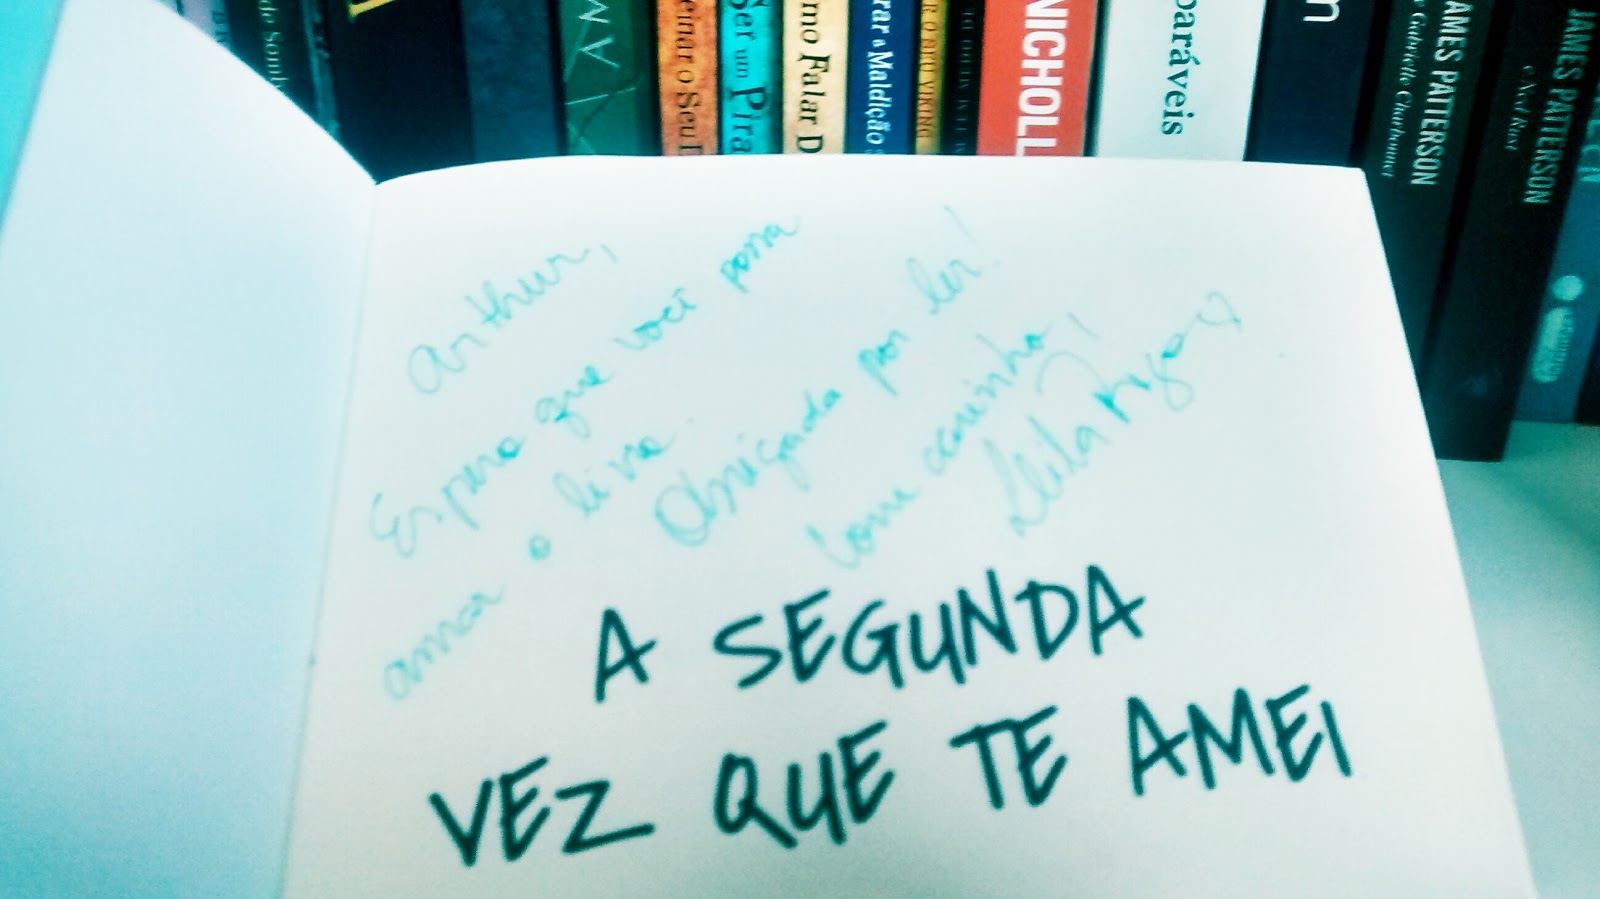 de Somb
einar o Seu D
Ser um Pira
mo Falar D
rar a Maldição
R O BULI VIKING
NICHOLL
paráveis
n
JAMES PATTERSON
e Gabrielle Charbonnet
JAMES PATTERSON
e Ned Rust
Arthur,
Espero que você possa
amar o livro.
Obrigada por ler!
Com carinho,
Leila
A SEGUNDA
VEZ QUE TE AMEI